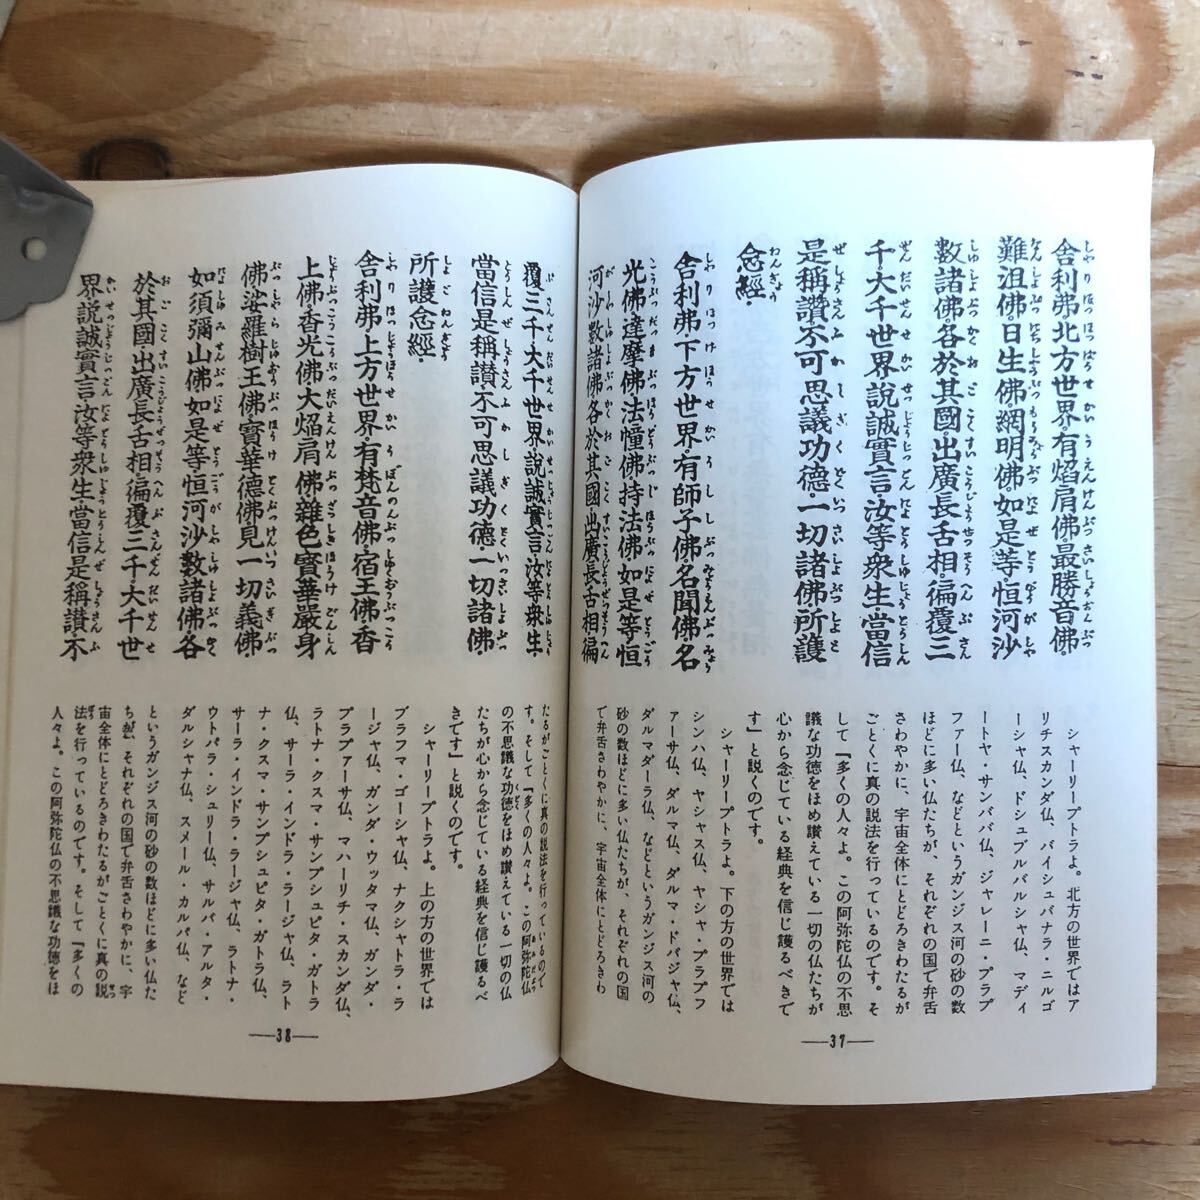 舍利弗北方世界有焰肩佛最勝音佛。
難沮佛。日生佛網明佛如是等・恒河沙
數諸佛各於其國出廣長舌相・徧覆三
千大千世界説誠實言・汝等衆生・當信
是稱讚不可思議功德・一切諸佛・所護
念經・
舍利弗・下方世界・有師子佛・名聞佛名
光佛達摩佛法幢佛持法佛如是等恒
河沙數諸佛各於其國出廣長・舌相・徧
シャーリープトラよ。北方の世界ではア
リチスカンダ仏、バイシュバナラ・ニルゴ
ーシャ仏、ドシュプルバルシャ仏、マデイ
ートヤ・サンババ仏、ジャレーニ・プラブ
ファー仏、などというガンジス河の砂の数
ほどに多い仏たちが、それぞれの国で弁舌
さわやかに、宇宙全体にとどろきわたるが
ごとくに真の説法を行っているのです。そ
して『多くの人々よ。この阿弥陀仏の不思
議な功徳をほめ讃えている一切の仏たちが
心から念じている経典を信じ護るべきで
す』と説くのです。
シャーリープトラよ。下の方の世界では
シンハ仏、ヤシャス仏、ヤシャ・プラブフ
アーサ仏、ダルマ仏、ダルマ・ドバジャ仏、
ダルマダーラ仏、などというガンジス河の
砂の数ほどに多い仏たちが、それぞれの国
で弁舌さわやかに、宇宙全体にとどろきわ
—37—
覆三千・大千世界・説誠實言・汝等衆生・
當信是稱讚・不可思議功德・一切諸佛・
所護念經・
舍利弗・上方世界・有梵音佛・宿王佛・香
上佛・香光佛・大焔肩佛・雜色寶華嚴身
佛・娑羅樹王佛・寶華德佛・見一切義佛・
如須彌山佛・如是等恒河沙數諸佛・各
於其國・出廣長舌相・徧覆三千・大千世
界・説誠實言・汝等衆生・當信是稱讚・不
たるがごとくに真の説法を行っているので
す。そして『多くの人々よ。この阿弥陀仏
の不思議な功徳をほめ讃えている一切の仏
たちが心から念じている経典を信じ護るべ
きです』と説くのです。
シャーリープトラよ。上の方の世界では
ブラフマ・ゴーシャ仏、ナクシャトラ・ラ
ージャ仏、ガンダ・ウッタマ仏、ガンダ・
プラブァーサ仏、マハーリチ・スカンダ仏、
ラトナ・クスマ・サンプシュピタ・ガトラ
仏、サーラ・インドラ・ラージャ仏、ラト
ナ・クスマ・サンプシュピタ・ガトラ仏、
サーラ・インドラ・ラージャ仏、ラトナ・
ウトパラ・シュリー仏、サルバ・アルタ・
ダルシャナ仏、スメール・カルパ仏、など
というガンジス河の砂の数ほどに多い仏た
ちが、それぞれの国で弁舌さわやかに、宇
宙全体にとどろきわたるがごとくに真の説
法を行っているのです。そして『多くの
人々よ。この阿弥陀仏の不思議な功徳をほ
—38—